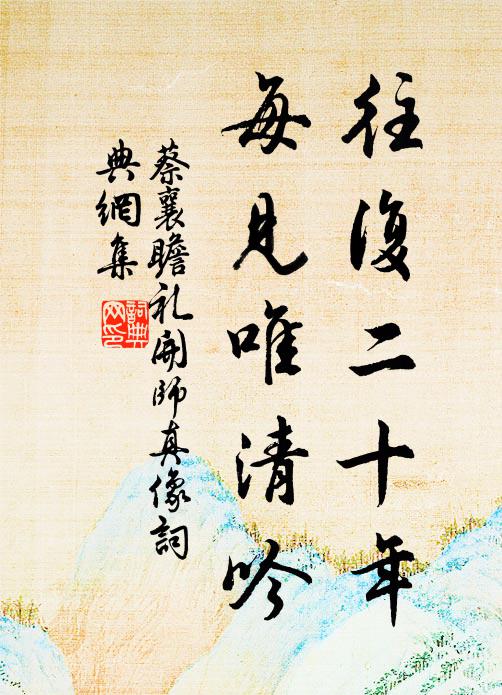 往復二十年
每見唯清吟
蔡襄瞻礼開師真像詞
典網集
詞典
网印